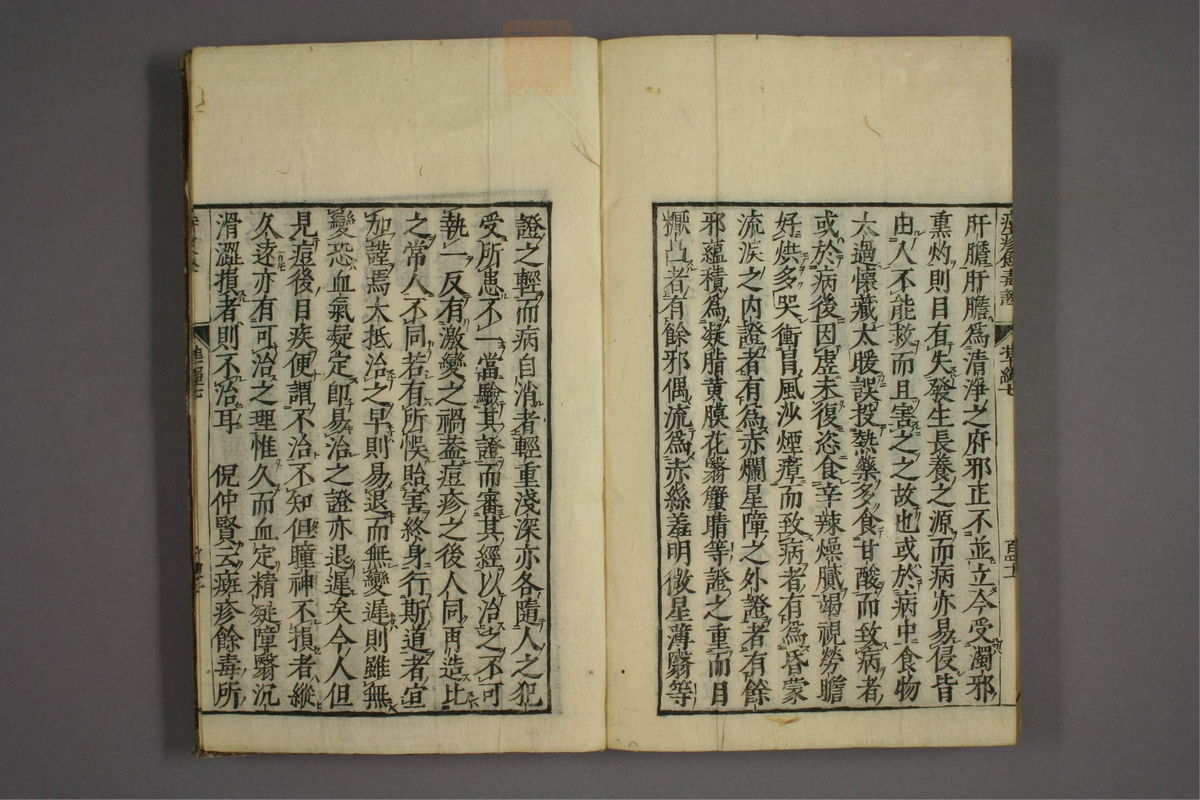 肝膽肝膽爲清淨之府邪正不並立今受濁邪
熏灼則目有失發生長養之源而病亦易侵皆
由人不能救而且害之之故也或於病中食物
太過懷藏太暖誤投熱藥多食甘酸而致病者
或於病後因虛未復恣食辛辣燥膩竭視勞膽
好烘多哭衝冒風沙煙瘴而致病者有爲昏蒙
流淚之内證者有爲赤爛星障之外證者有餘
邪蘊積爲凝脂黄膜花翳蟹睛等證之重而目
凸者有餘邪偶流爲赤絲羞明微星薄翳等
證之輕而病自消者輕重淺深亦各隨人之犯
受所患不一當驗其證而審其經以治之不可
執一反有激變之禍蓋痘疹之後人同再造比
之常人不同若有所悞貽害終身行斯道者宜
加謹焉大抵治之早則易退而無變遲則雖無
變恐血氣凝定即易治之證亦退遲矣今人但
見痘後目疾便謂不治不知但瞳神不損者縱
久遠亦有可治之理惟久而血定精凝障翳沉
滑澀損者則不治耳 倪仲賢云斑疹餘毒所